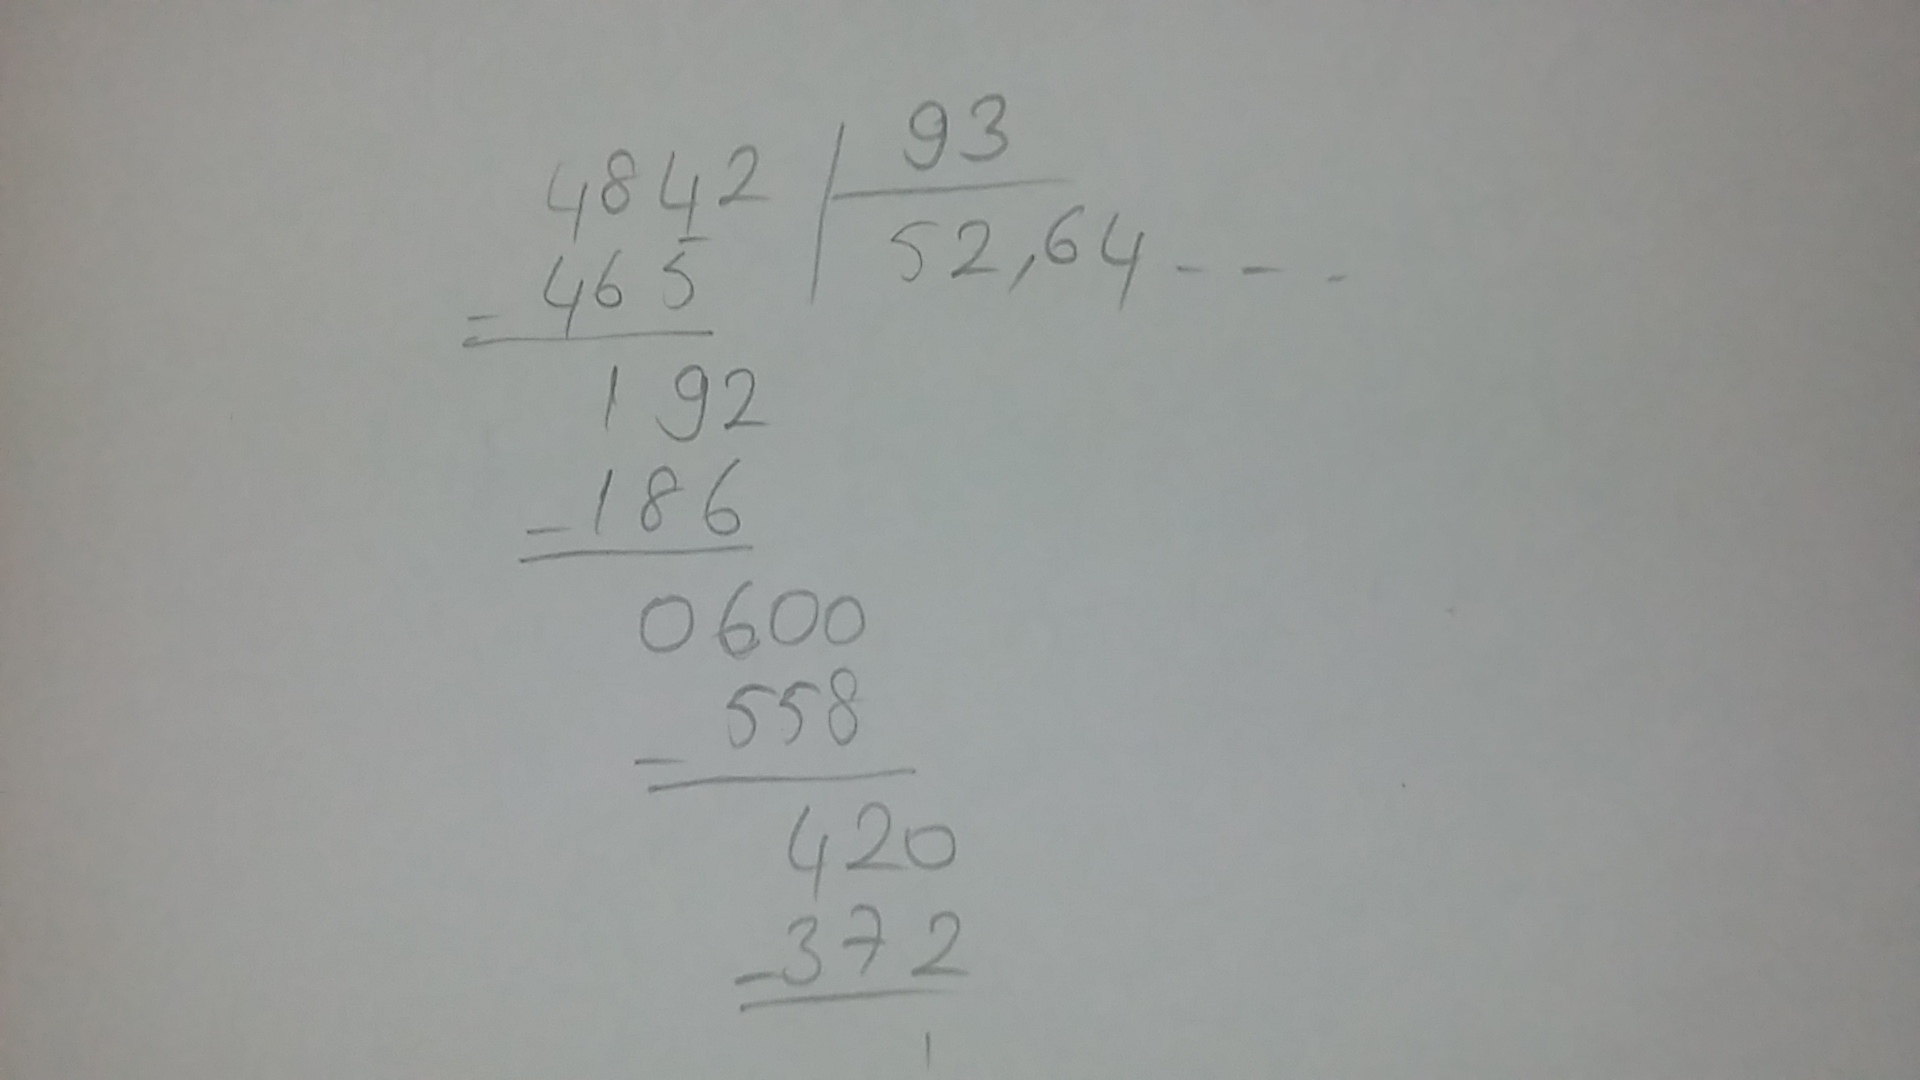 4842 | 93
52,64 - - -
- 465
192
- 186
0600
- 558
420
- 372
1